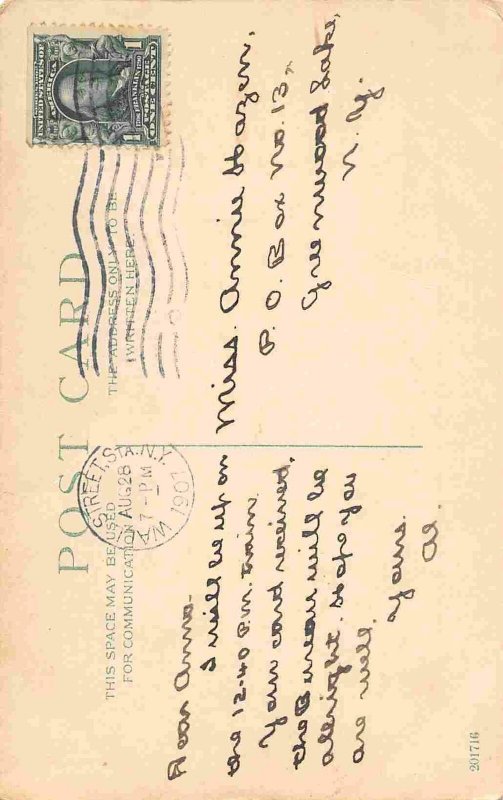 POST CARD
THIS SPACE MAY BE USED
FOR COMMUNICATION
THE ADDRESS ONLY TO BE
WRITTEN HERE.
UNITED STATES OF AMERICA
1790 FRANKLIN
POSTAGE
1 ONE CENT 1
WALL STREET, STA. N.Y.
AUG 28
7 - PM
1907
Dear Anna-
I will be up on
the 12-40 P.M. train.
Your card received,
the Bureau will be
allright. Hope you
are well.
Yours.
Al.
Miss. Annie Hazen,
P. O. Box No. 13,
Greenwood Lake,
N. Y.
201716